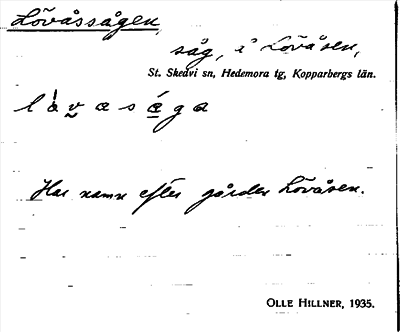 Lövåssågen,
såg, i Lövåsen,
St. Skedvi sn, Hedemora tg, Kopparbergs län.
l ȧ v a s á g a
Har namn efter gården Lövåsen.
OLLE HILLNER, 1935.